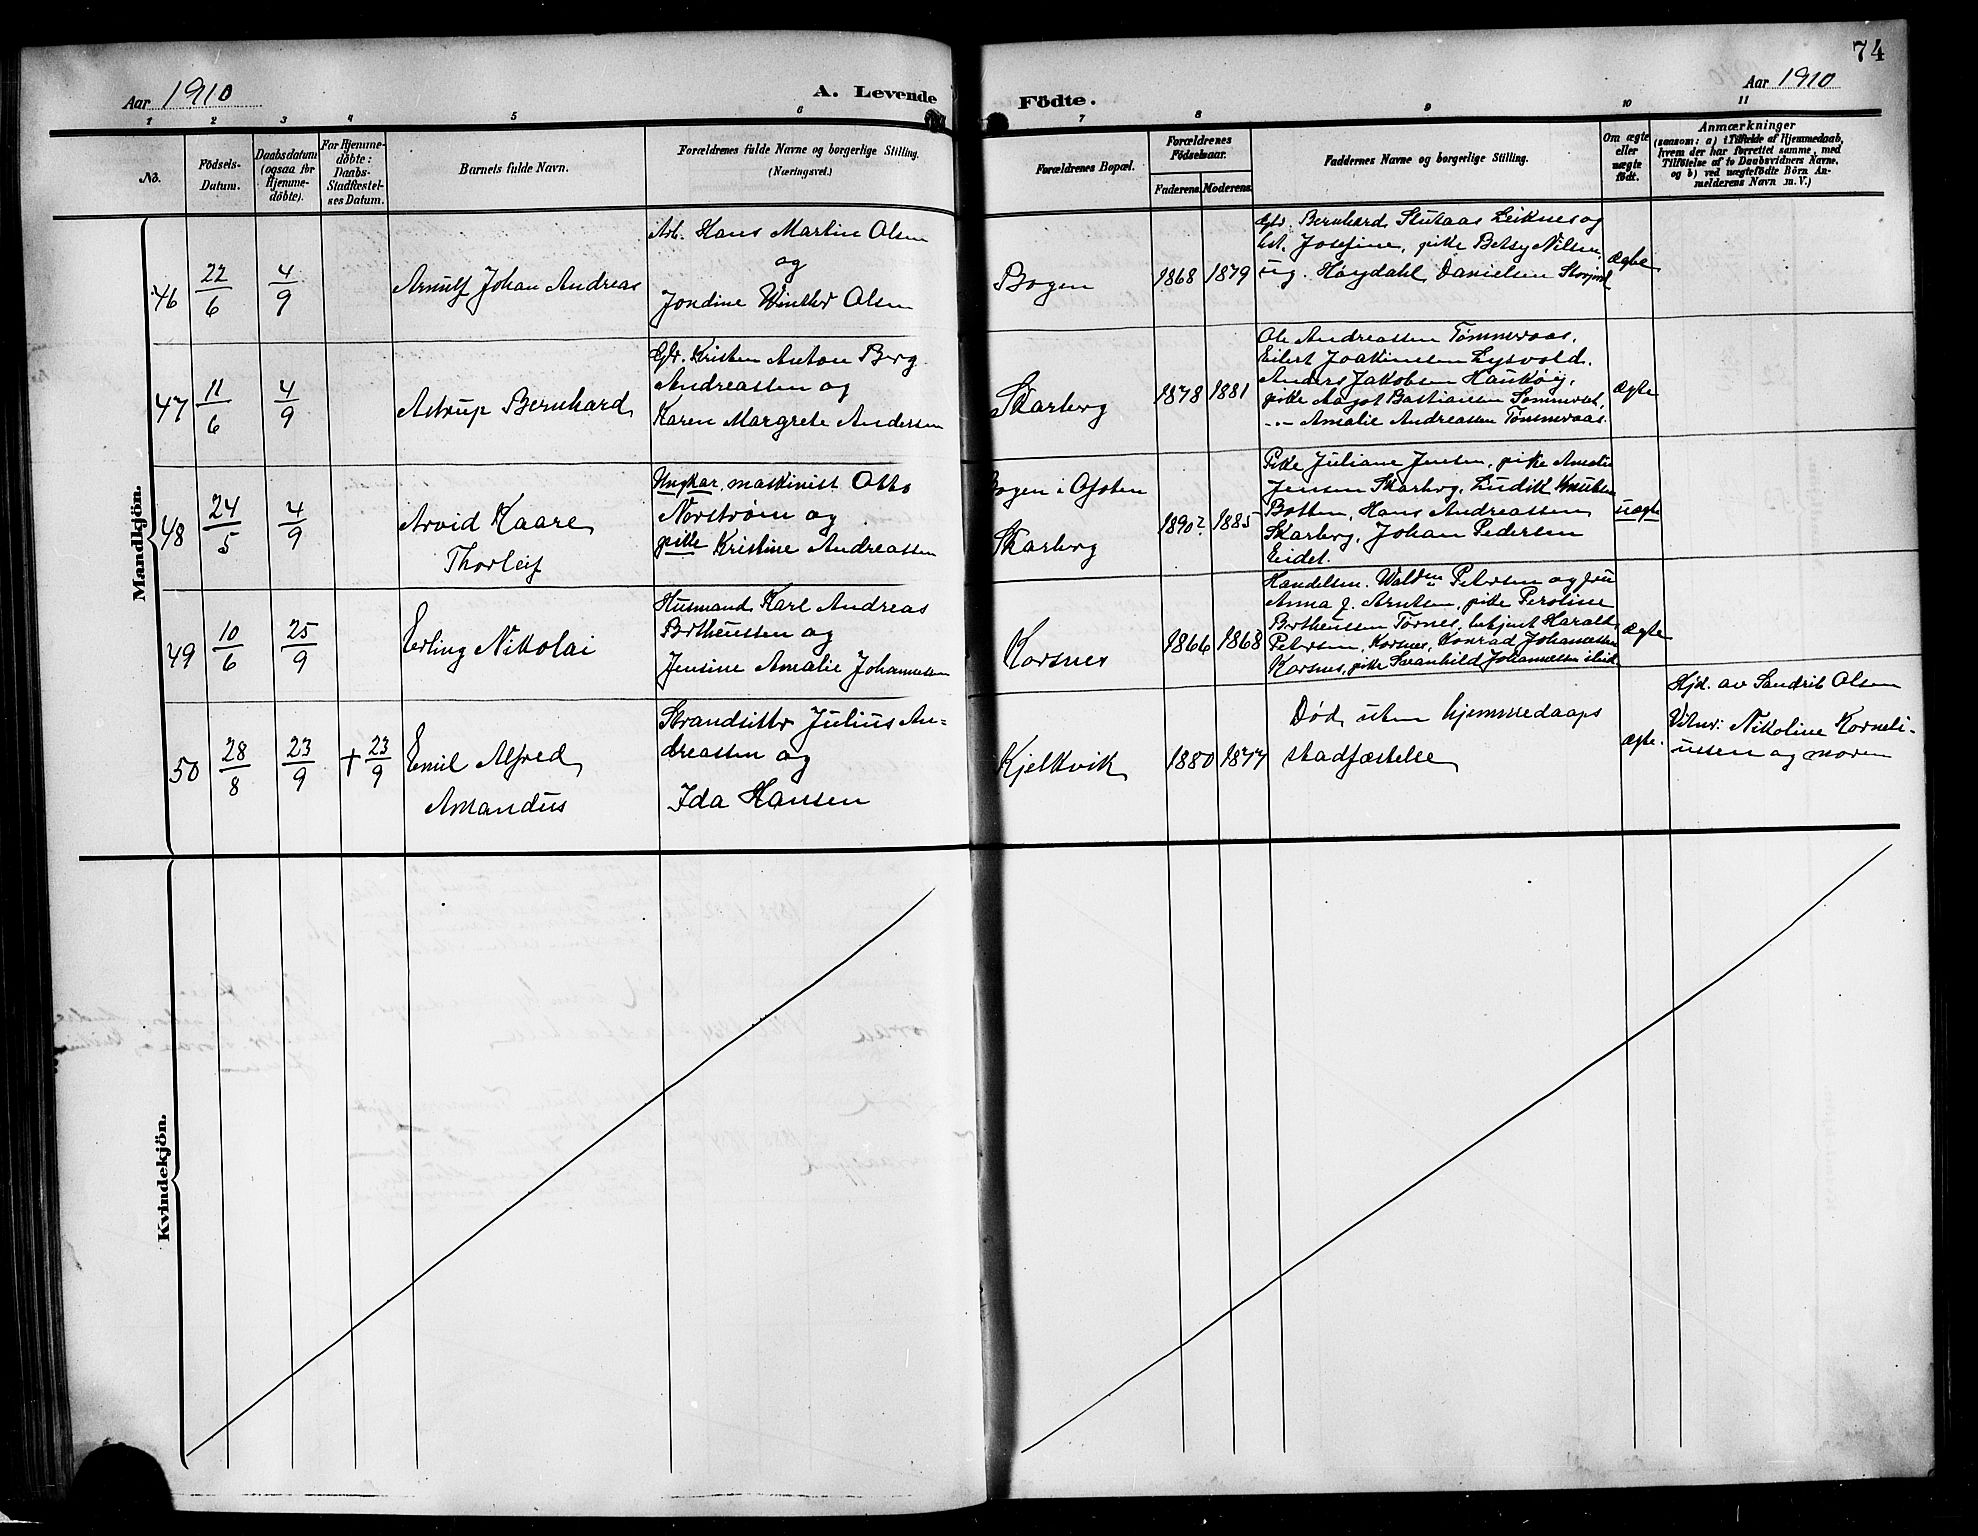 74
Aar 1910
A. Levende
Födte.
Aar 1910
1 2 3 4 5 6 7 8 9 10 11
No.
Födsels-
Datum.
Daabsdatum
(ogsaa for
Hjemme-
døbte).
For Hjemme-
døbte:
Daabs-
Stadfæstel-
ses Datum.
Barnets fulde Navn.
Forældrenes fulde Navne og borgerlige Stilling.
(Næringsvei.)
Forældrenes Bopæl.
Forældrenes
Födselsaar.
Faderens. Moderens.
Faddernes Navne og borgerlige Stilling.
Om ægte
eller
uægte
födt.
Anmærkninger
(saasom: a) i Tilfælde af Hjemmedaab,
hvem der har forrettet samme, med
Tilföielse af to Daabsvidners Navne,
og b) ved uægtefödte Börn An-
melderens Navn m. V.)
Mandkjön.
46 22/6 4/9
Arnulf Johan Andreas
Arb. Hans Martin Olsen
og
Jondine Winther Olsen
Bogen
1868 1879
Bernhard Leiknes og
Josefine, pike Betsy Nilsen,
ug. Høydahl Danielsen
Ægte
47 11/6 4/9
Astrup Bernhard
Gbr. Kristen Anton Berg
Andreassen og
Karen Margrete Andersen
Skarberg
1878 1881
Ole Andreassen Tømmeraas,
Eilert Joakimsen Lysvold,
Anders Jakobsen Haukøy,
pike Aagot Bastiansen Sommerset,
-"- Amalie Andreassen Tømmeraas.
Ægte
48 24/5 4/9
Arvid Kaare
Thorleif
Ungkar, maskinist Otto
Norstrøm og
pike Kristine Andreassen
Bogen i Ofoten
Skarberg
1890? 1885
Pike Juliane Jensen, pike Amalie
Jensen Skarberg, Ludik Knutsen
Botten, Hans Andreassen
Skarberg, Johan Pedersen
Eidet.
uægte
49 10/6 25/9
Erling Nikolai
Husmand Karl Andreas
Bertheussen og
Jensine Amalie Johannessen
Korsnes
1866 1868
Handelsm. Petersen og fru
Anna J. Arntsen, pike Peroline
Bertheussen Tørnes, betjent Harald
Petersen, Korsnes, Konrad Johannessen
Korsnes, pike Johannessen
Ægte
50 28/8 23/9 + 23/9
Emil Alfred
Amandus
Strandsitter Julius An=
dreassen og
Ida Hansen
Kjelkvik
1880 1877
Død uten hjemmedaaps
stadfæstelse
ægte.
Hjd. av Sandrik Olsen
Vitner: Nikoline Korneli-
ussen og moren
Kvindekjön.